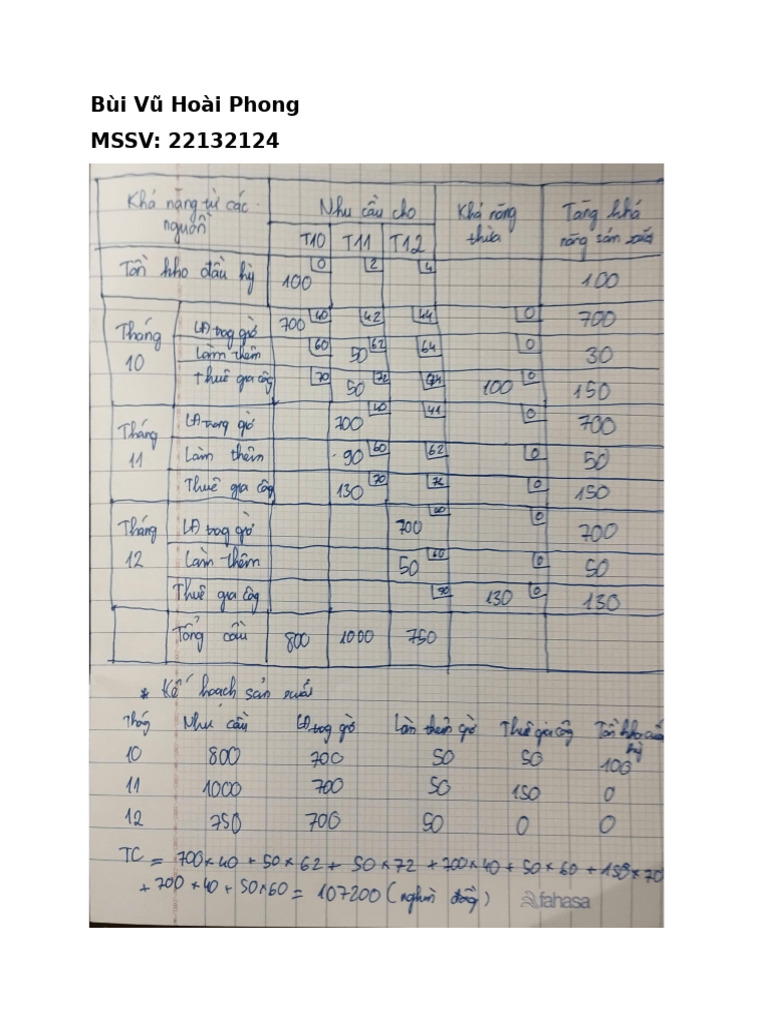 Bùi Vũ Hoài Phong
MSSV: 22132124
Khả năng từ các nguồn Nhu cầu cho Khả năng thừa Tổng khả năng sản xuất
T10 T11 T12
Tồn kho đầu kỳ 100 0 2 4 100
Tháng 10 LĐ trong giờ 700 40 42 44 0 700
Làm thêm 60 50 62 64 0 30
Thuê gia công 70 50 72 74 100 0 150
Tháng 11 LĐ trong giờ 700 40 41 0 700
Làm thêm 90 60 62 0 50
Thuê gia công 130 70 72 0 150
Tháng 12 LĐ trong giờ 700 40 0 700
Làm thêm 50 60 0 50
Thuê gia công 90 130 0 130
Tổng cầu 800 1000 750
* Kế hoạch sản xuất
Tháng Nhu cầu LĐ trong giờ Làm thêm giờ Thuê gia công Tồn kho cuối kỳ
10 800 700 50 50 100
11 1000 700 50 150 0
12 750 700 50 0 0
TC = 700x40 + 50x62 + 50x72 + 700x40 + 50x60 + 150x70
+ 700x40 + 50x60 = 107200 (nghìn đồng)
fahasa